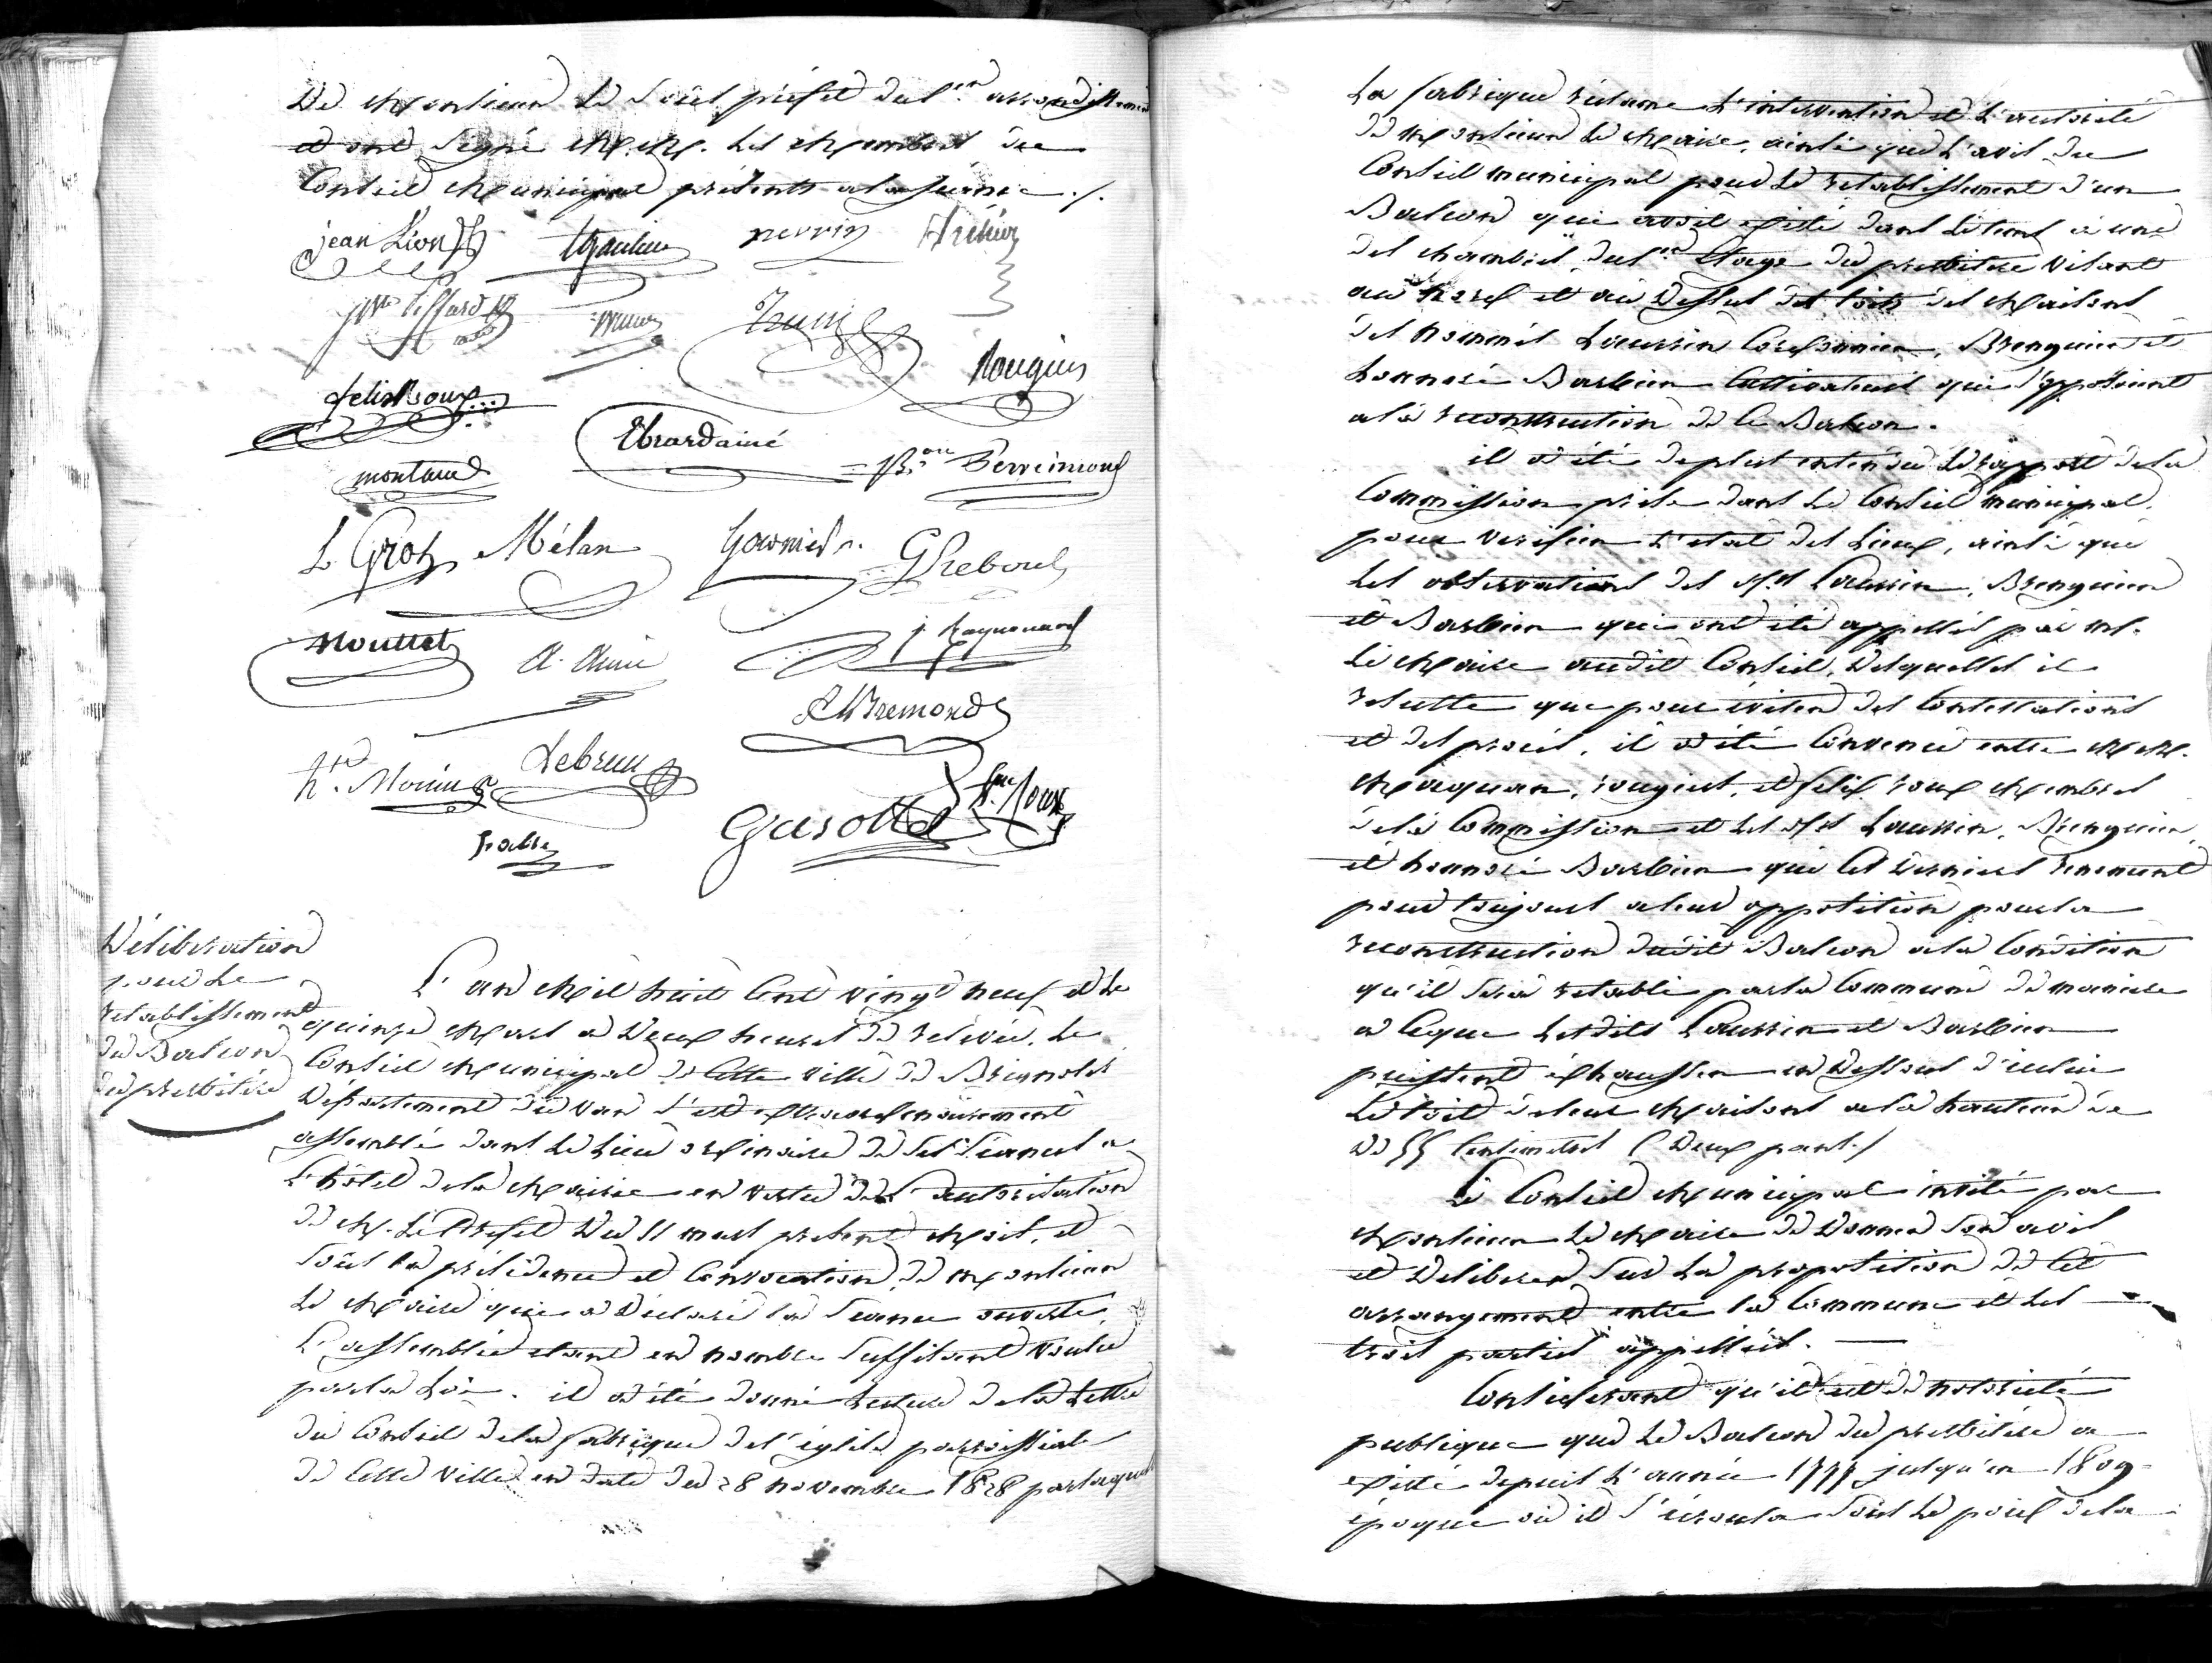 De Monsieur Le Sous préfet du 1er arrondissement
et ont Signé MM. Les Membres du
Conseil Municipal présents a la Séance ./.
jean Lion
nerrin
felix Roux
Rougier
Ebrard ainé
montaud
L. Gros
Mélan
Garnier
G Reboul
Mouttet
J. Raynouard
Bremond
hre. Monin
Lebrun
Gasotte
Roux
Fabre
Déliberation
pour Le
retablissement
du Balcon
du presbitère
L'an Mil huit Cent vingt neuf et le
quinze Mars a Deux heures de relevée, Le
Conseil Municipal de Cette Ville de Brignoles
Département du var s'est extraordinairement
assemblé dans Le Lieu ordinaire de Ses Séances a
L'hôtel de la Mairie en vertu de L'autorisation
de M. Le Préfet Du 11 mars present Mois, et
Sous la présidence et Convocation de Monsieur
Le Maire qui a Déclaré la Séance ouverte,
L'assemblée etant en nombre Suffisant voulu
par la Loi. il a été donné Lecture de la Lettre
du Conseil de la fabrique de l'église parroissiale
de Cette Ville en date du 28 novembre 1828 par laquelle
La fabrique réclame L'intervention et L'autorité
de Monsieur Le Maire, ainsi que L'avis du
Conseil municipal pour Le retablissement d'un
Balcon qui avoit existé dans Le tems à une
des chambres du 1er Etage du presbitère visant
au Nord et au Dessus des toits des Maisons
des nommés Laurrin Cordonnier, Brenguier et
honnoré Barbier Cultivateurs qui s'opposoient
a la reconstruction de Ce Balcon.
il a été de plus entendu Le rapport de la
Commission prise dans Le Conseil municipal
pour verifier L'etat des Lieux, ainsi que
Les observations des Srs Laurrin, Brenguier
et Barbier qui ont été appellés par M.
Le Maire audit Conseil, Desquelles il
resulte que pour éviter des Contestations
et des procès, il a été Convenu entre MM.
Maquan, rougier, et felix roux Membres
de la Commission et Les Srs Laurrin, Brenguier,
et honnoré Barbier que Ces Derniers renoncent
pour toujours a leur opposition pour la
reconstruction dudit Balcon a la Condition
qu'il Sera retabli par la Commune de maniere
a Ceque Lesdits Laurrin et Barbier
puissent exhausser en Dessous d'icelui
Le toit de leurs Maisons a la hauteur de
De 55 Centimetres (Deux pans./
Le Conseil Municipal invité par
Monsieur Le Maire de Donner Son avis
et Deliberer Sur La proposition de Cet
arrangement entre la Commune et Les
trois parties appellées.
Considerant qu'il est de notorieté
publique que Le Balcon du presbitère a
existé depuis L'année 1777 jusqu'en 1809
époque où il S'écroula Sous Le poids de la